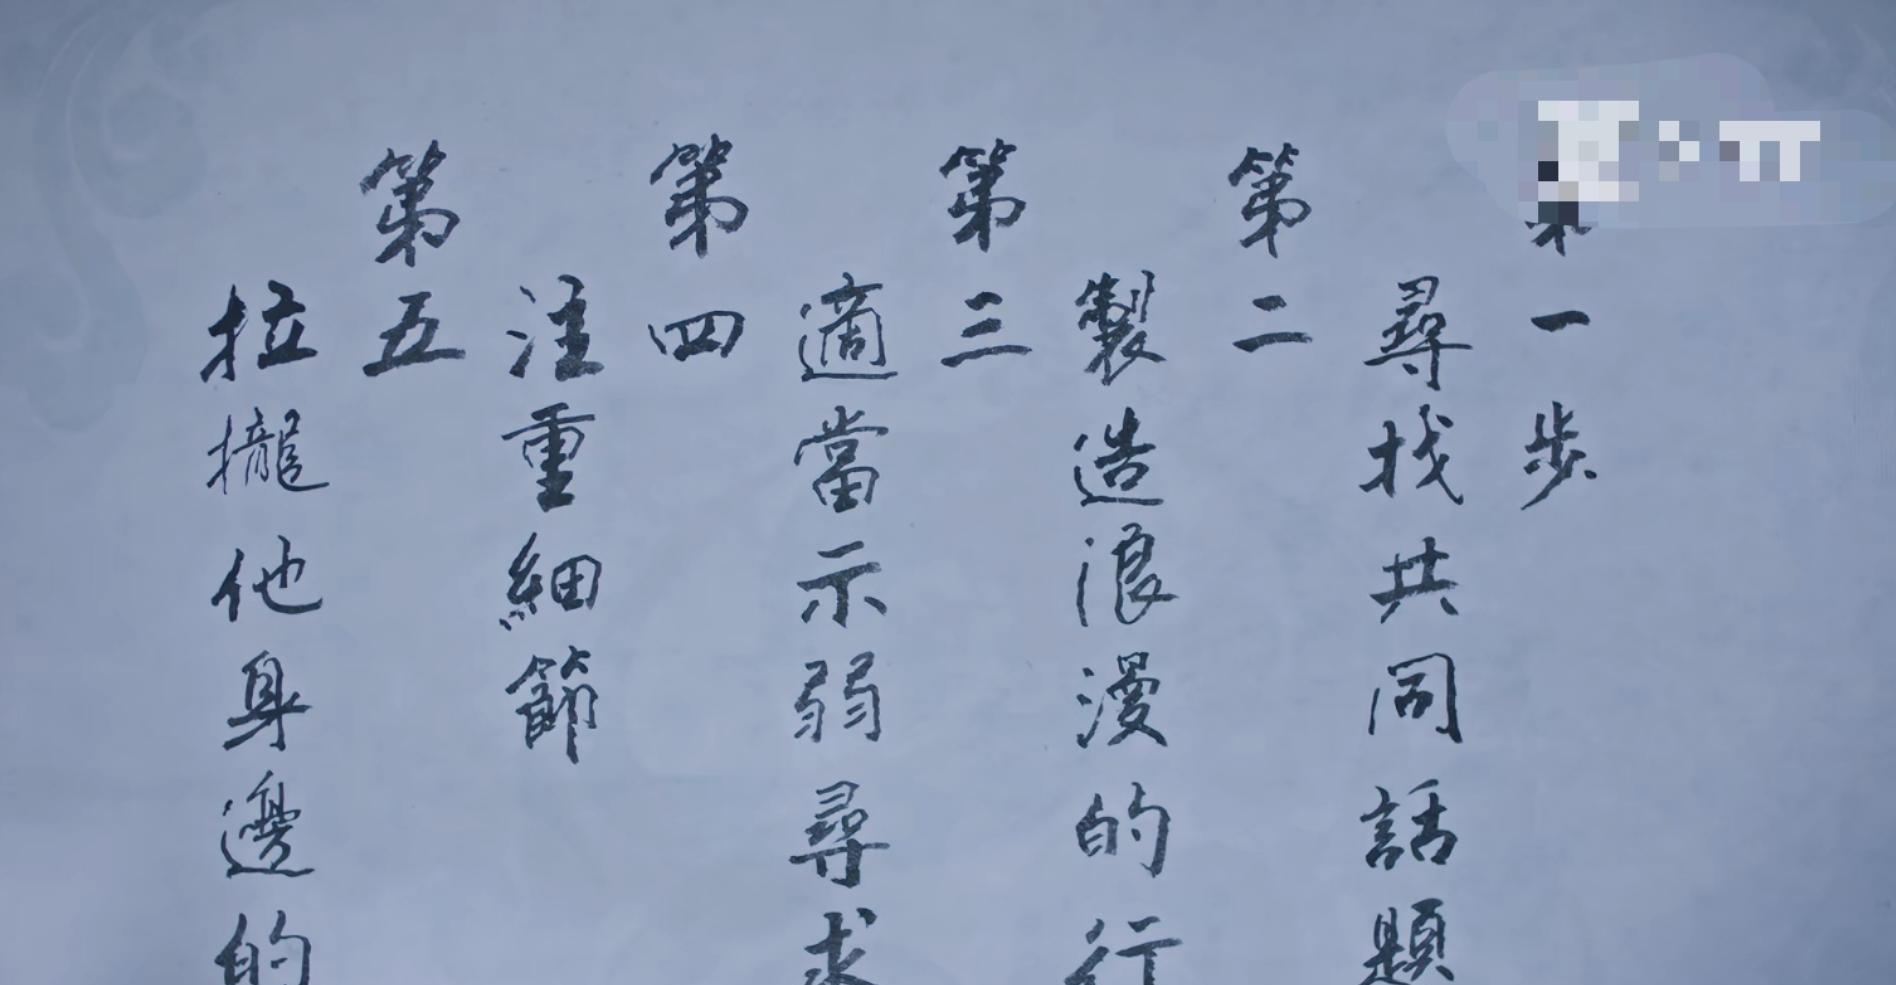 第一步
尋找共同話題
第二
製造浪漫的行
第三
適當示弱尋求
第四
注重細節
第五
拉攏他身邊的